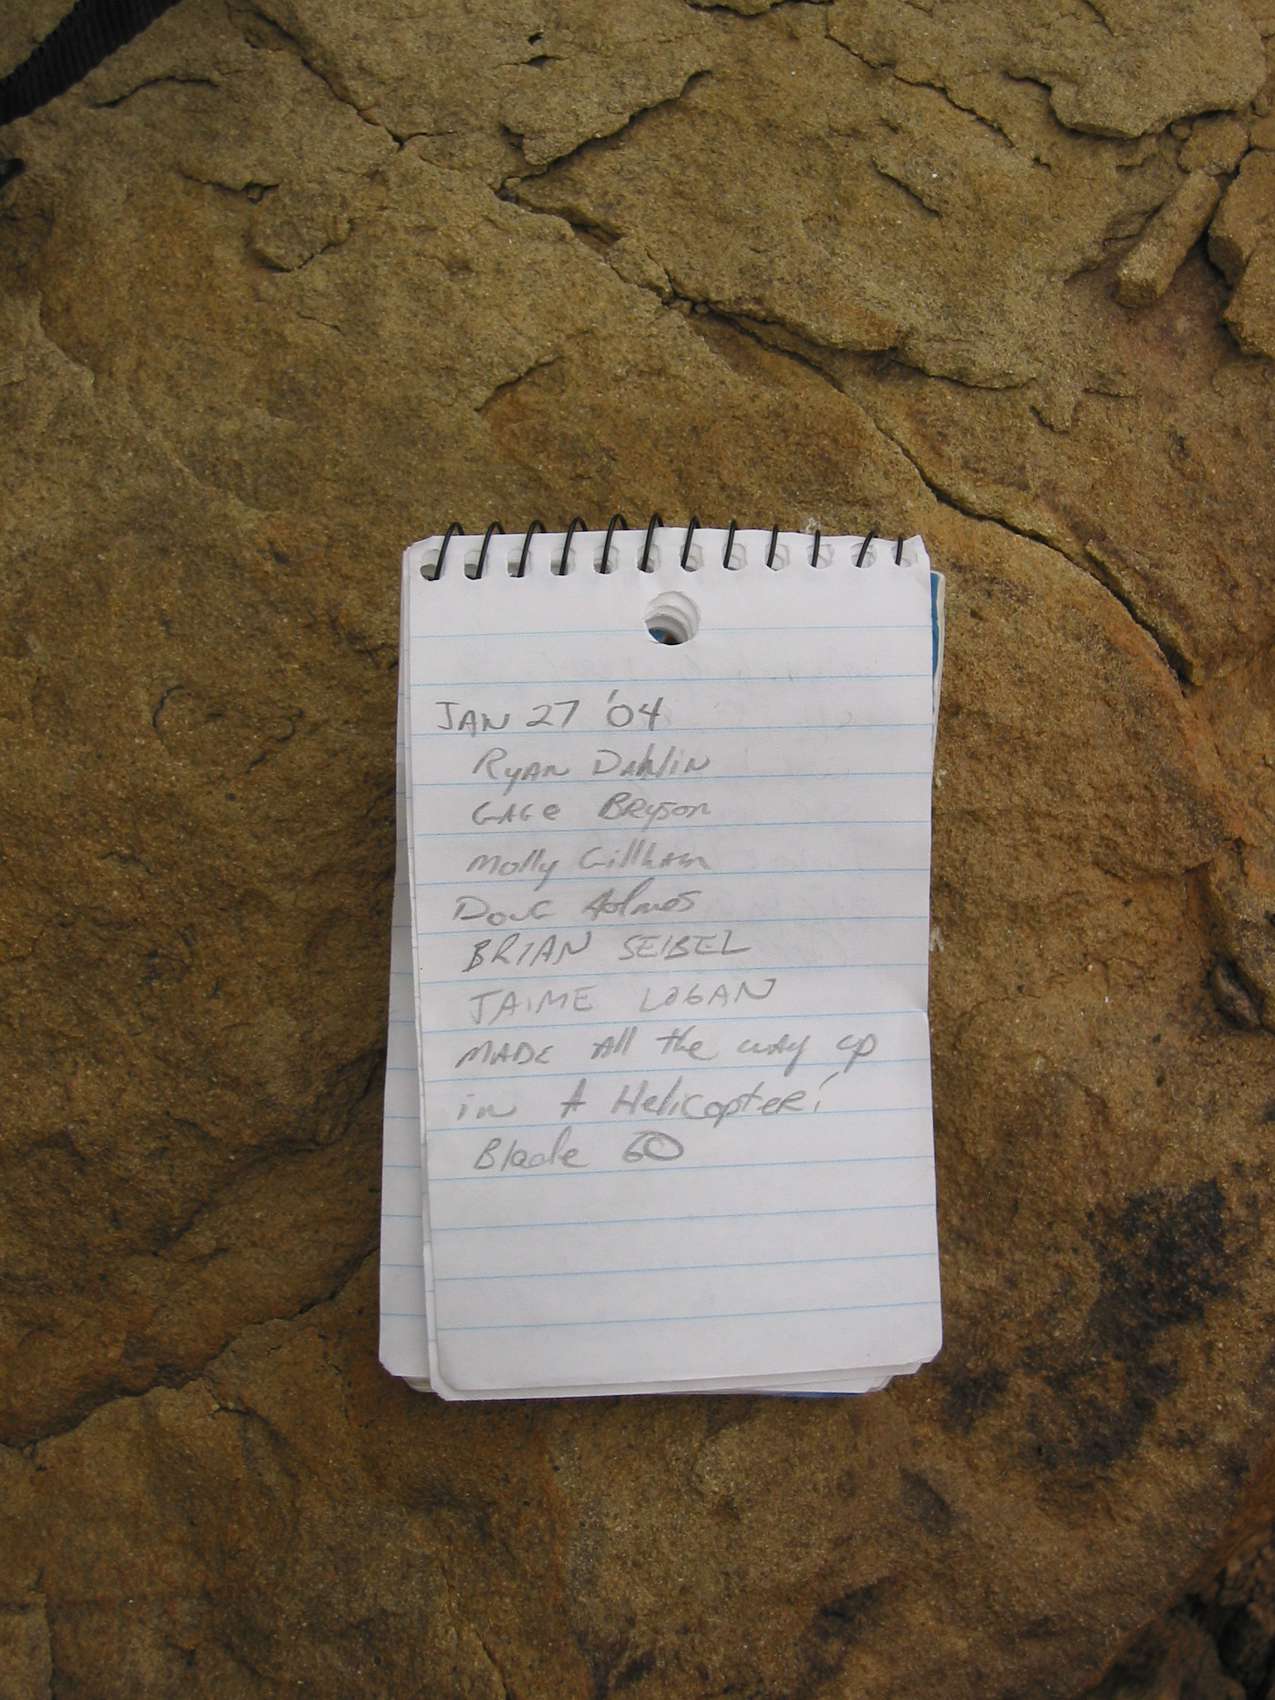 JAN 27 '04
RYAN DAHlIN
GAGe BRYSON
Molly Gillham
DOUG Holmes
BRIAN SEIBEL
JAIME LOGAN
MADE All the way up
in A HelicopteR!
Blade 60